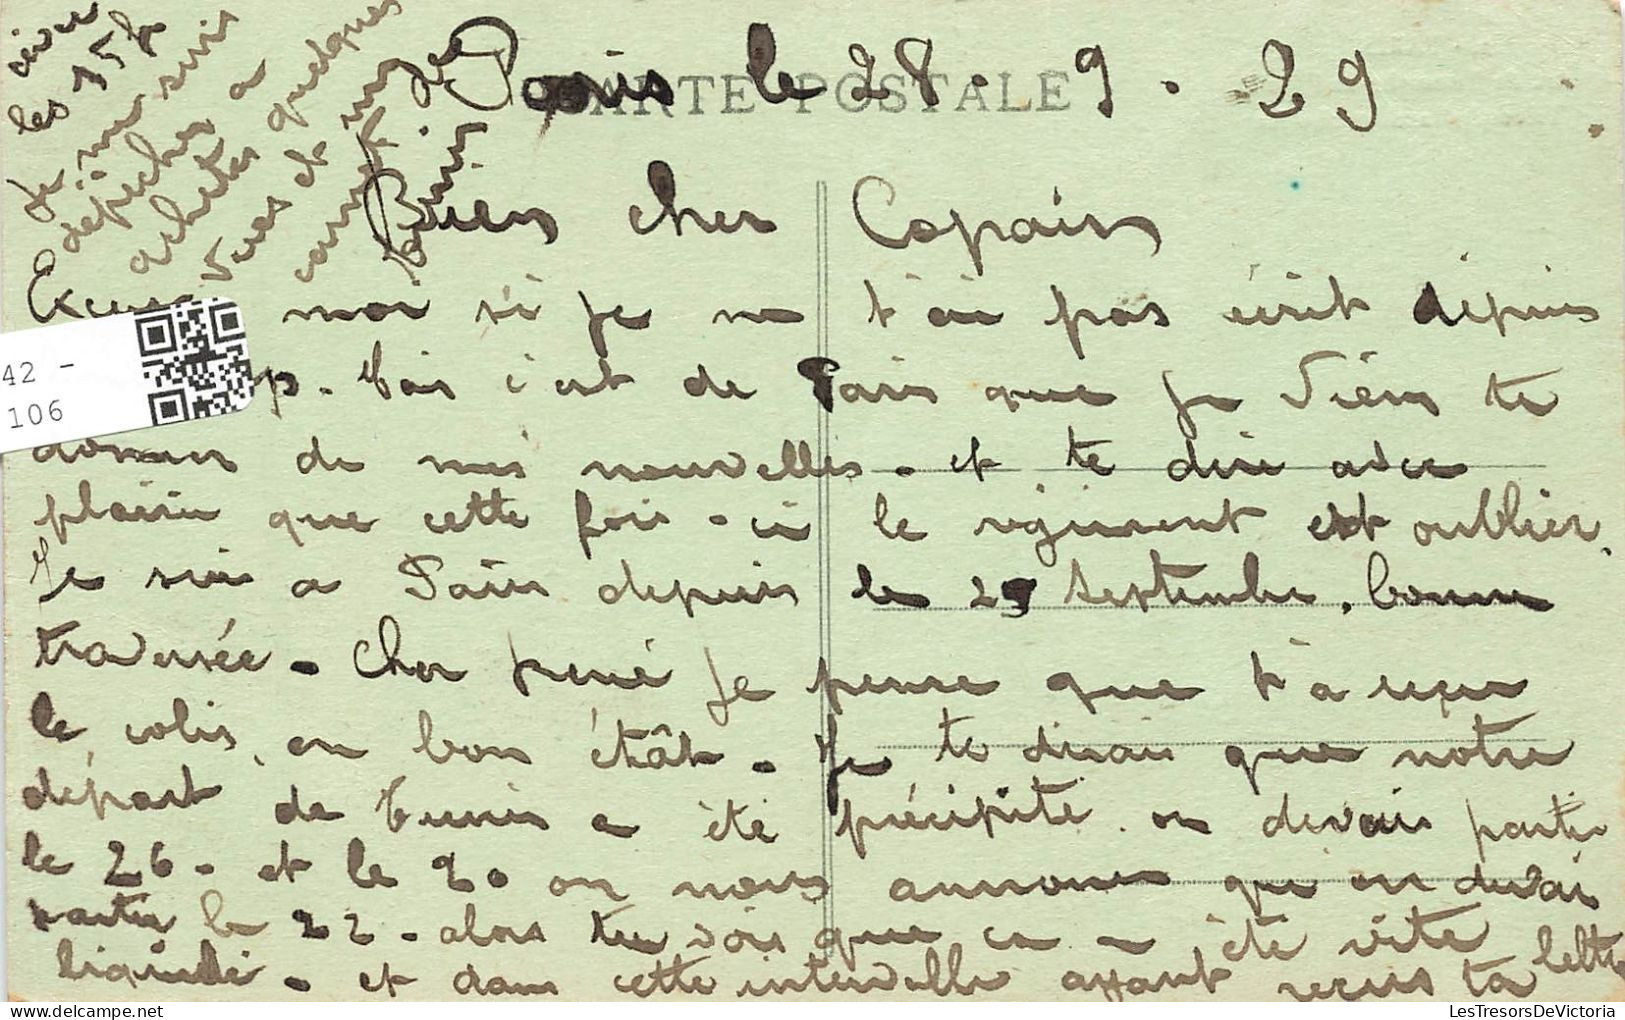 Paris le 28. 9. 29
CARTE POSTALE
Bien cher Copain
Excuse moi si je ne t'ai pas écrit dépuis
p. Mais c'est de Paris que je viens te
donner de mes nouvelles. et te dire avec
plaisir que cette fois-ci le régiment est oublier.
Je suis a Paris depuis le 25 septembre. bonne
traversée. Cher René je pense que t'a reçu
le colis en bon étât. Je te dirai que notre
départ de Tunis a été précipité on devais partir
le 26. et le 20 on nous annonce que on devai
partir le 22. alors tu vois que ca a été vite
liquidé. et dans cette intervalle ayant reçus ta lettre
avec
les 15 f
Je me suis
dépecher a
acheter quelques
vues et
42 -
106
LesTresorsDeVictoria
delcampe.net